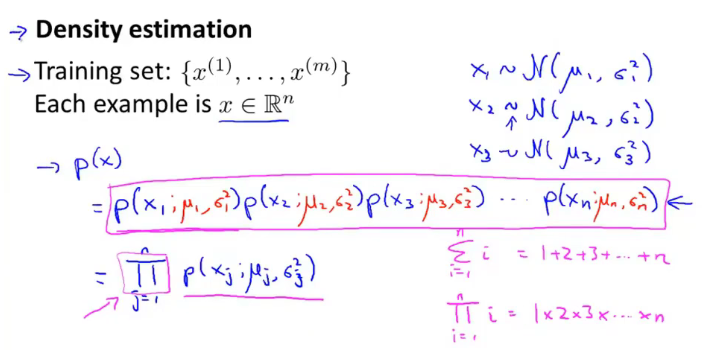 → Density estimation
→ Training set: {x^(1), . . . , x^(m)}
Each example is x ∈ ℝ^n
x₁ ~ N(μ₁, σ₁²)
x₂ ~ N(μ₂, σ₂²)
↑
x₃ ~ N(μ₃, σ₃²)
→ p(x)
= p(x₁; μ₁, σ₁²) p(x₂; μ₂, σ₂²) p(x₃; μ₃, σ₃²) ··· p(xₙ; μₙ, σₙ²) ←
= ∏_{j=1}^{n} p(xⱼ; μⱼ, σⱼ²)
∑_{i=1}^{n} i = 1+2+3+···+n
∏_{i=1}^{n} i = 1×2×3×···×n